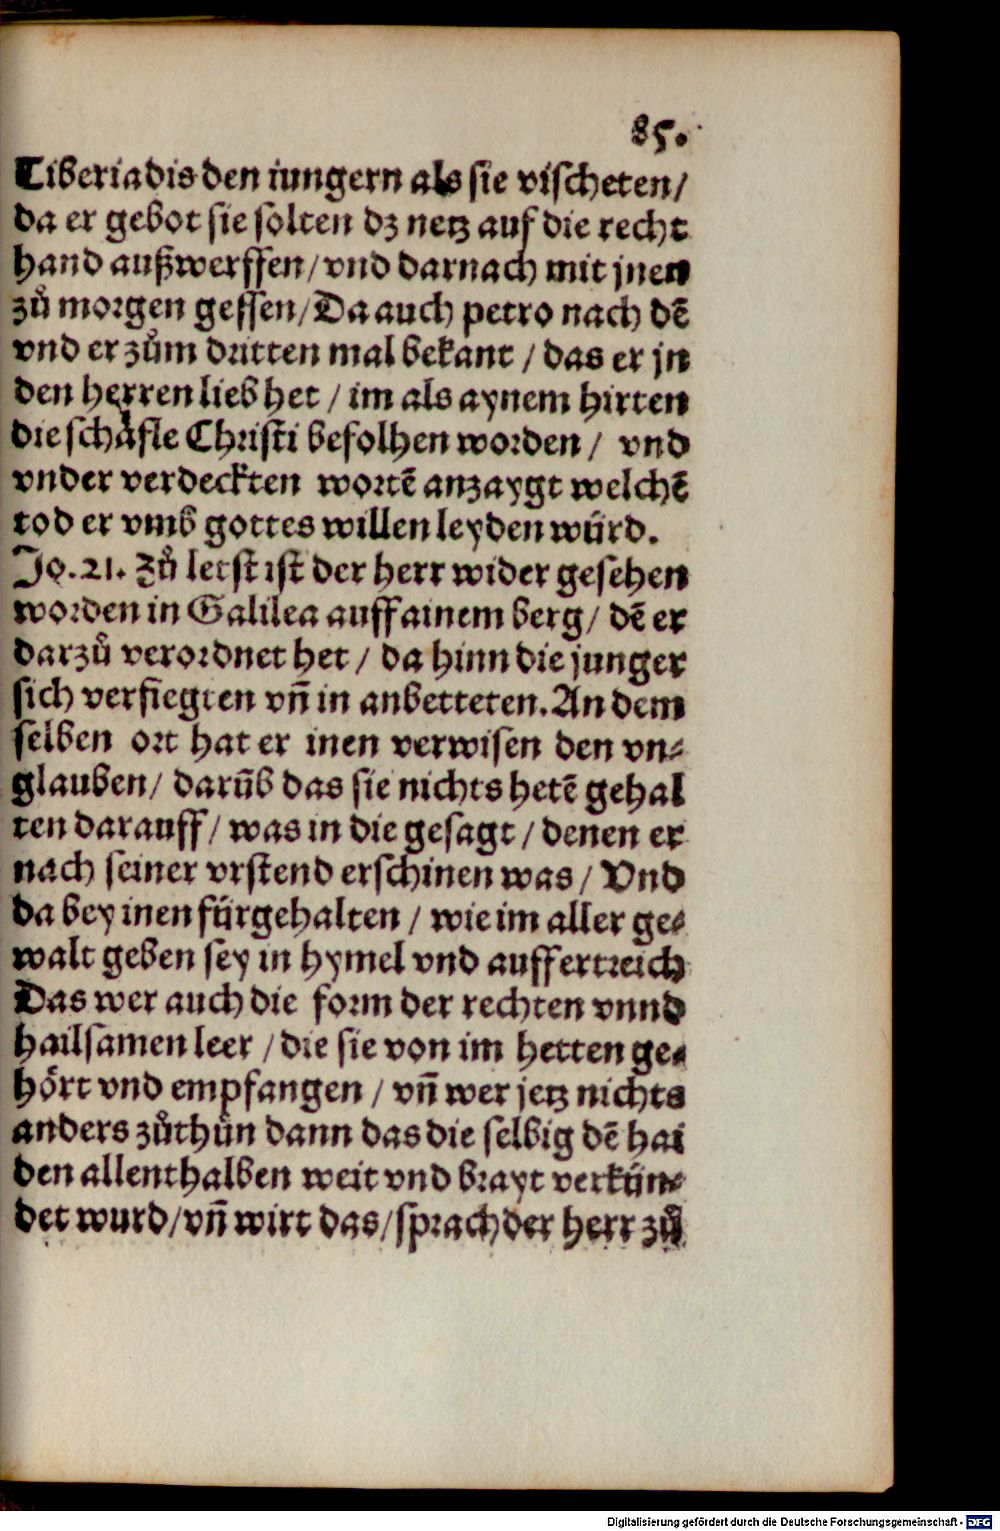 85.
Tiberiadis den iungern als sie vischeten/
da er gebot sie solten dz netz auf die recht
hand außwerffen/vnd darnach mit jnen
zuͦ morgen gessen/Da auch petro nach dē
vnd er zuͦm dritten mal bekant / das er jn
den herren lieb het / im als aynem hirten
die schaͤfle Christi befolhen worden / vnd
vnder verdeckten wortē anzaygt welchē
tod er vmb gottes willen leyden wuͤrd.
Jo.21. Zuͦ letst ist der herr wider gesehen
worden in Galilea auff ainem berg/ dē er
darzuͦ verordnet het / da hinn die junger
sich verfiegten vñ in anbetteten. An dem
selben ort hat er inen verwisen den vn⸗
glauben/ darūb das sie nichts hetē gehal
ten darauff/ was in die gesagt / denen er
nach seiner vrstend erschinen was / Vnd
da bey inen fuͤrgehalten / wie im aller ge⸗
walt geben sey in hymel vnd auff ertreich
Das wer auch die form der rechten vnnd
hailsamen leer / die sie von im hetten ge⸗
hoͤrt vnd empfangen / vñ wer jetz nichts
anders zuͦthuͦn dann das die selbig dē hai
den allenthalben weit vnd brayt verkuͤn⸗
det wurd/vñ wirt das/sprach der herr zuͦ
Digitalisierung gefördert durch die Deutsche Forschungsgemeinschaft - DFG